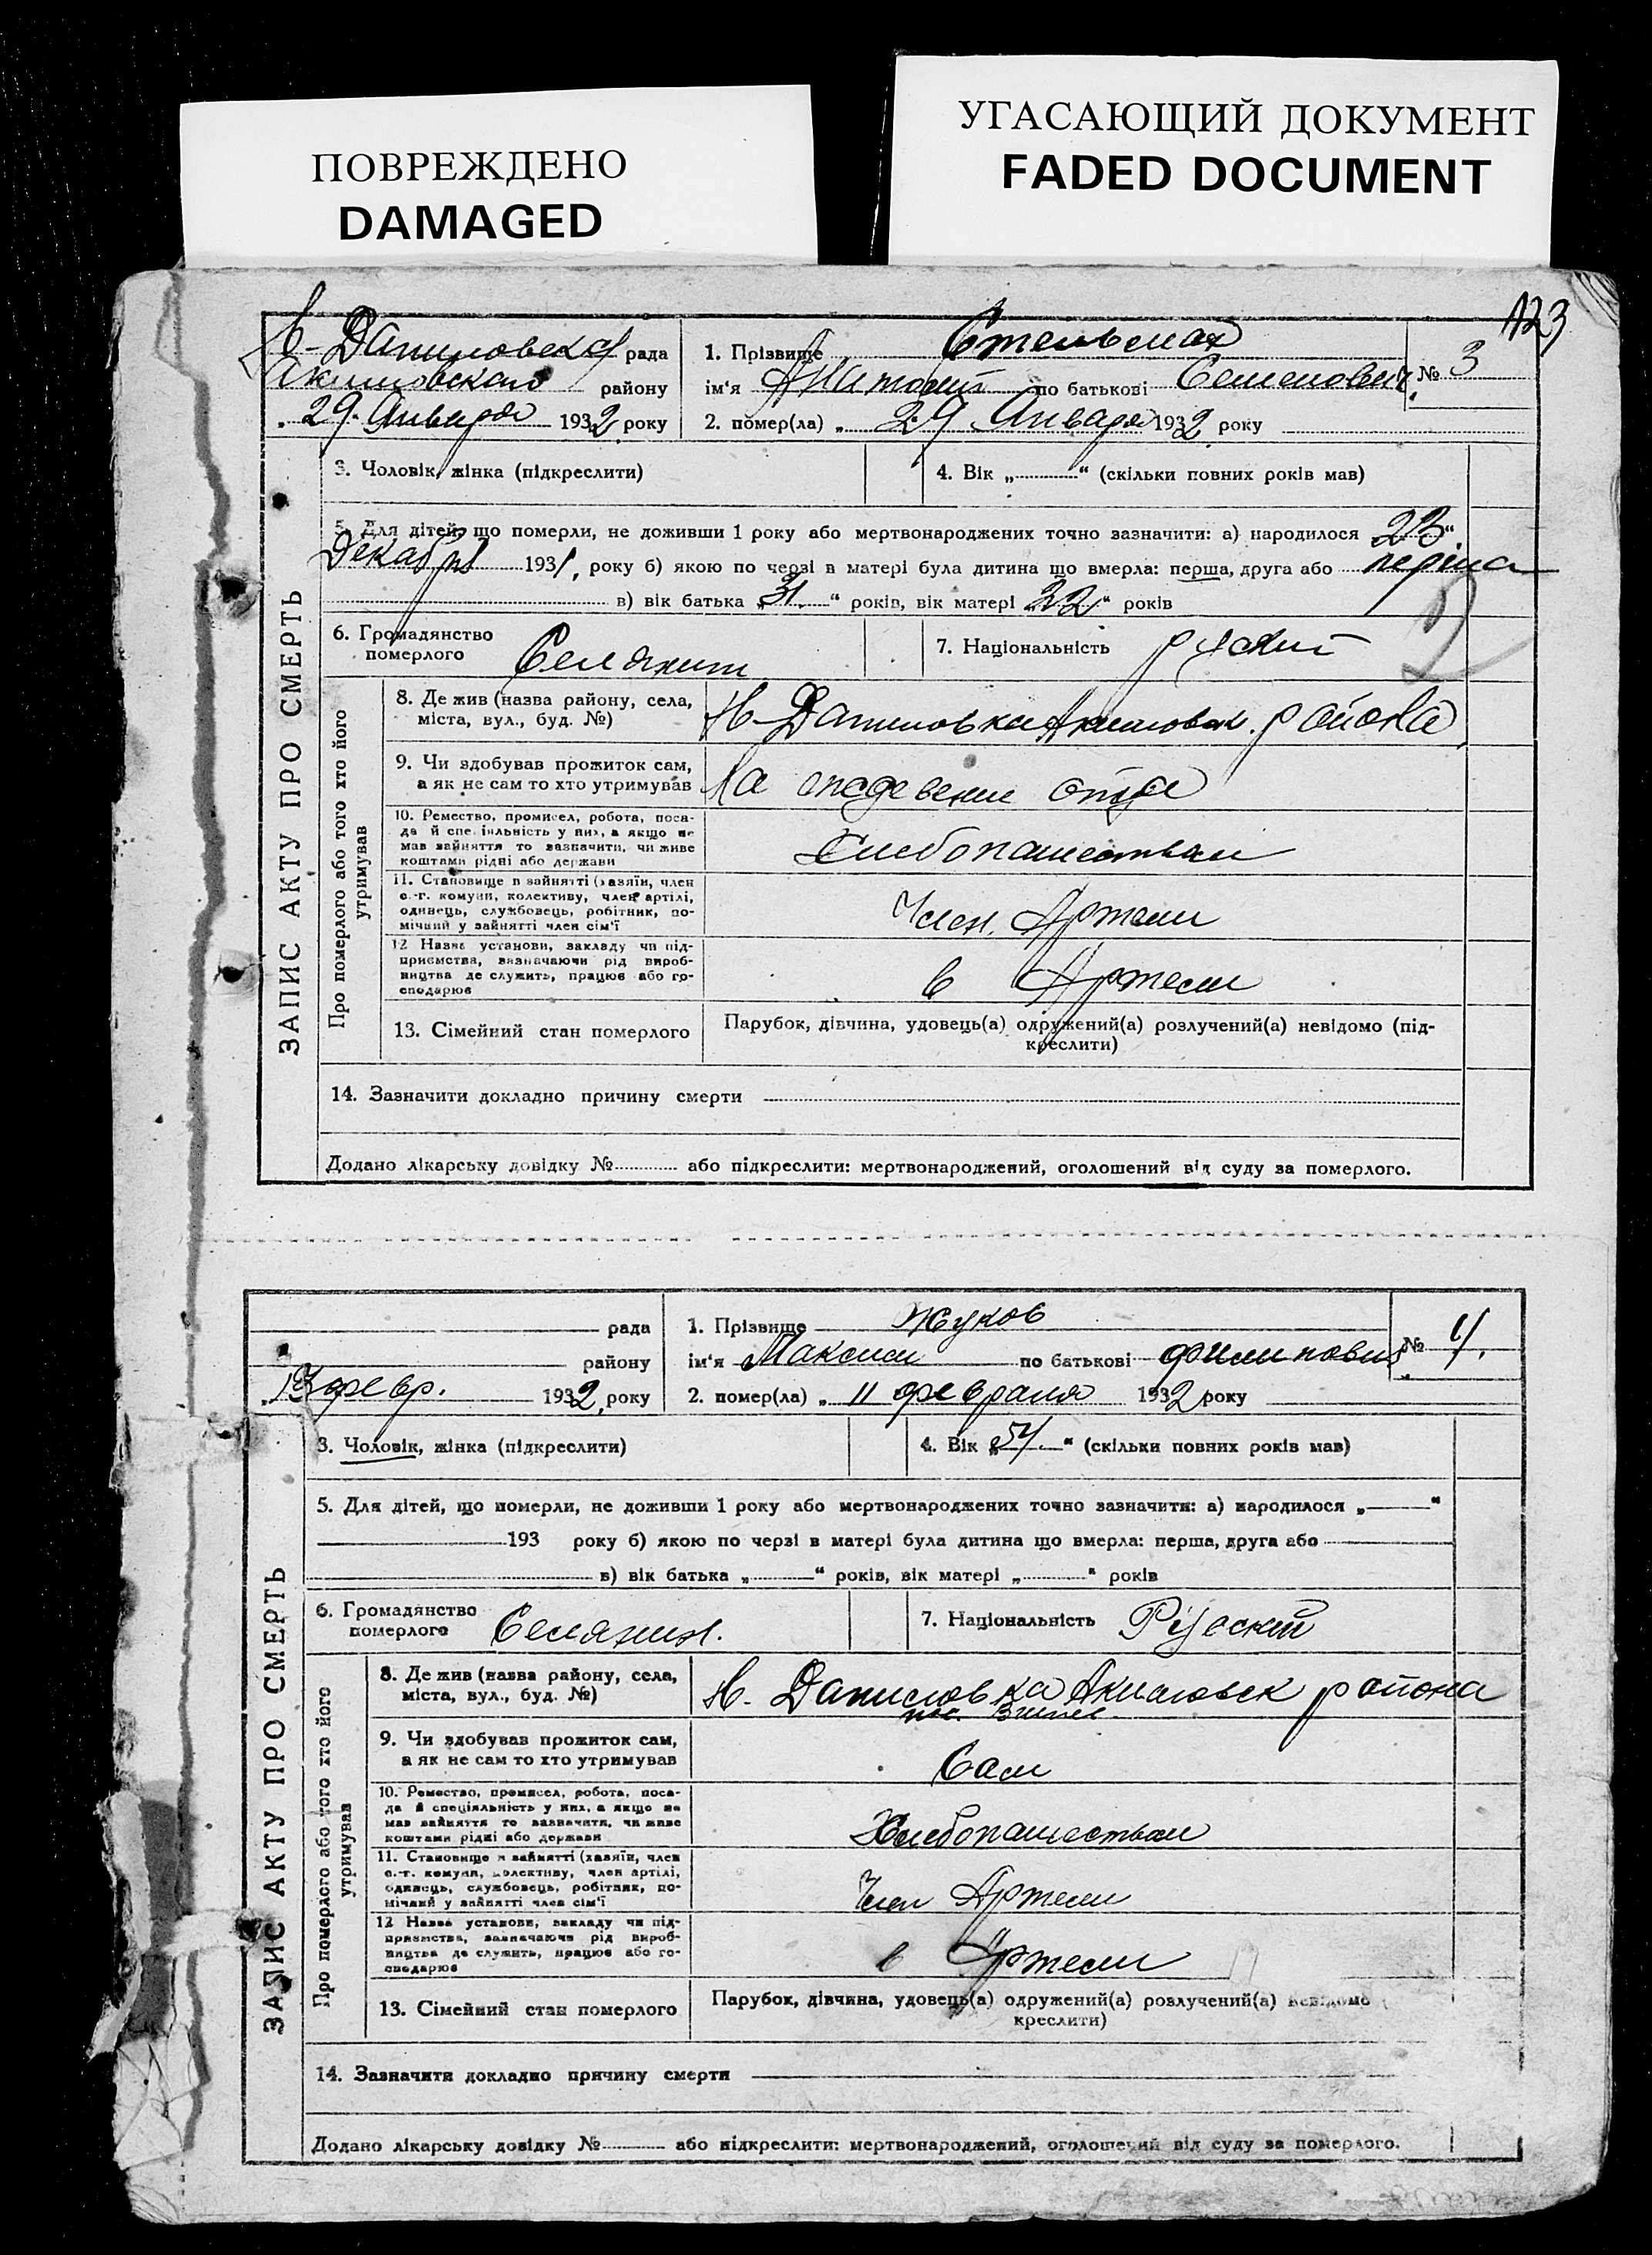 ПОВРЕЖДЕНО
DAMAGED
УГАСАЮЩИЙ ДОКУМЕНТ
FADED DOCUMENT
123
Н-Даниловска рада
Акимовского району
„29" Января 1932 року
1. Прізвище Стельмах
ім'я Анатолий по батькові Семенович
№ 3
2. помер(ла) „29 Января 1932 року
ЗАПИС АКТУ ПРО СМЕРТЬ
3. Чоловік, жінка (підкреслити)
4. Вік „ “ (скільки повних років мав)
5. Для дітей, що померли, не доживши 1 року або мертвонароджених точно зазначити: а) народилося 23“
Декабря 1931, року б) якою по черзі в матері була дитина що вмерла: перша, друга або перша
в) вік батька „31“ років, вік матері 22“ років
6. Громадянство
померлого Селянин
7. Національність руский
2
Про померлого або того хто його
утримував
8. Де жив (назва району, села,
міста, вул., буд. №)
Н-Даниловка Акимовск. района
9. Чи здобував прожиток сам,
а як не сам то хто утримував
На иждевении отца
10. Ремество, промисел, робота, поса-
да й спеціяльність у них, а якщо не
мав зайняття то зазначити, чи живе
коштами рідні або держави
Хлебопашеством
11. Становище в зайнятті (хазяїн, член
с.-г. комуни, колективу, член артілі,
одинець, службовець, робітник, по-
мічний у зайнятті член сім'ї
Член. Артели
12 Назва установи, закладу чи під-
приємства, зазначаючи рід вироб-
ництва де служить, працює або го-
сподарює
в Артели
13. Сімейний стан померлого
Парубок, дівчина, удовець(а) одружений(а) розлучений(а) невідомо (під-
креслити)
14. Зазначити докладно причину смерти
Додано лікарську довідку № або підкреслити: мертвонароджений, оголошений від суду за померлого.
рада
району
„13 февр. 1932, року
1. Прізвище Жуков
ім'я Максим по батькові Филипович
№ 4.
2. помер(ла) „11 февраля 1932 року
ЗАПИС АКТУ ПРО СМЕРТЬ
3. Чоловік, жінка (підкреслити)
4. Вік „54.“ (скільки повних років мав)
5. Для дітей, що померли, не доживши 1 року або мертвонароджених точно зазначити: а) народилося „ “
193 року б) якою по черзі в матері була дитина що вмерла: перша, друга або
в) вік батька „ “ років, вік матері „ “ років
6. Громадянство
померлого Селянин.
7. Національність Руоский
Про померлого або того хто його
утримував
8. Де жив (назва району, села,
міста, вул., буд. №)
Н. Даниловка Акимовск района
9. Чи здобував прожиток сам,
а як не сам то хто утримував
Сам
10. Ремество, промисел, робота, поса-
да й спеціяльність у них, а якщо не
мав зайняття то зазначити, чи живе
коштами рідні або держави
Хлебопашеством
11. Становище в зайнятті (хазяїн, член
с.-г. комуни, колективу, член артілі,
одинець, службовець, робітник, по-
мічний у зайнятті член сім'ї
Член Артели
12 Назва установи, закладу чи під-
приємства, зазначаючи рід вироб-
ництва де служить, працює або го-
сподарює
в Артели
13. Сімейний стан померлого
Парубок, дівчина, удовець(а) одружений(а) розлучений(а) невідомо
креслити)
14. Зазначити докладно причину смерти
Додано лікарську довідку № або підкреслити: мертвонароджений, оголошений від суду за померлого.